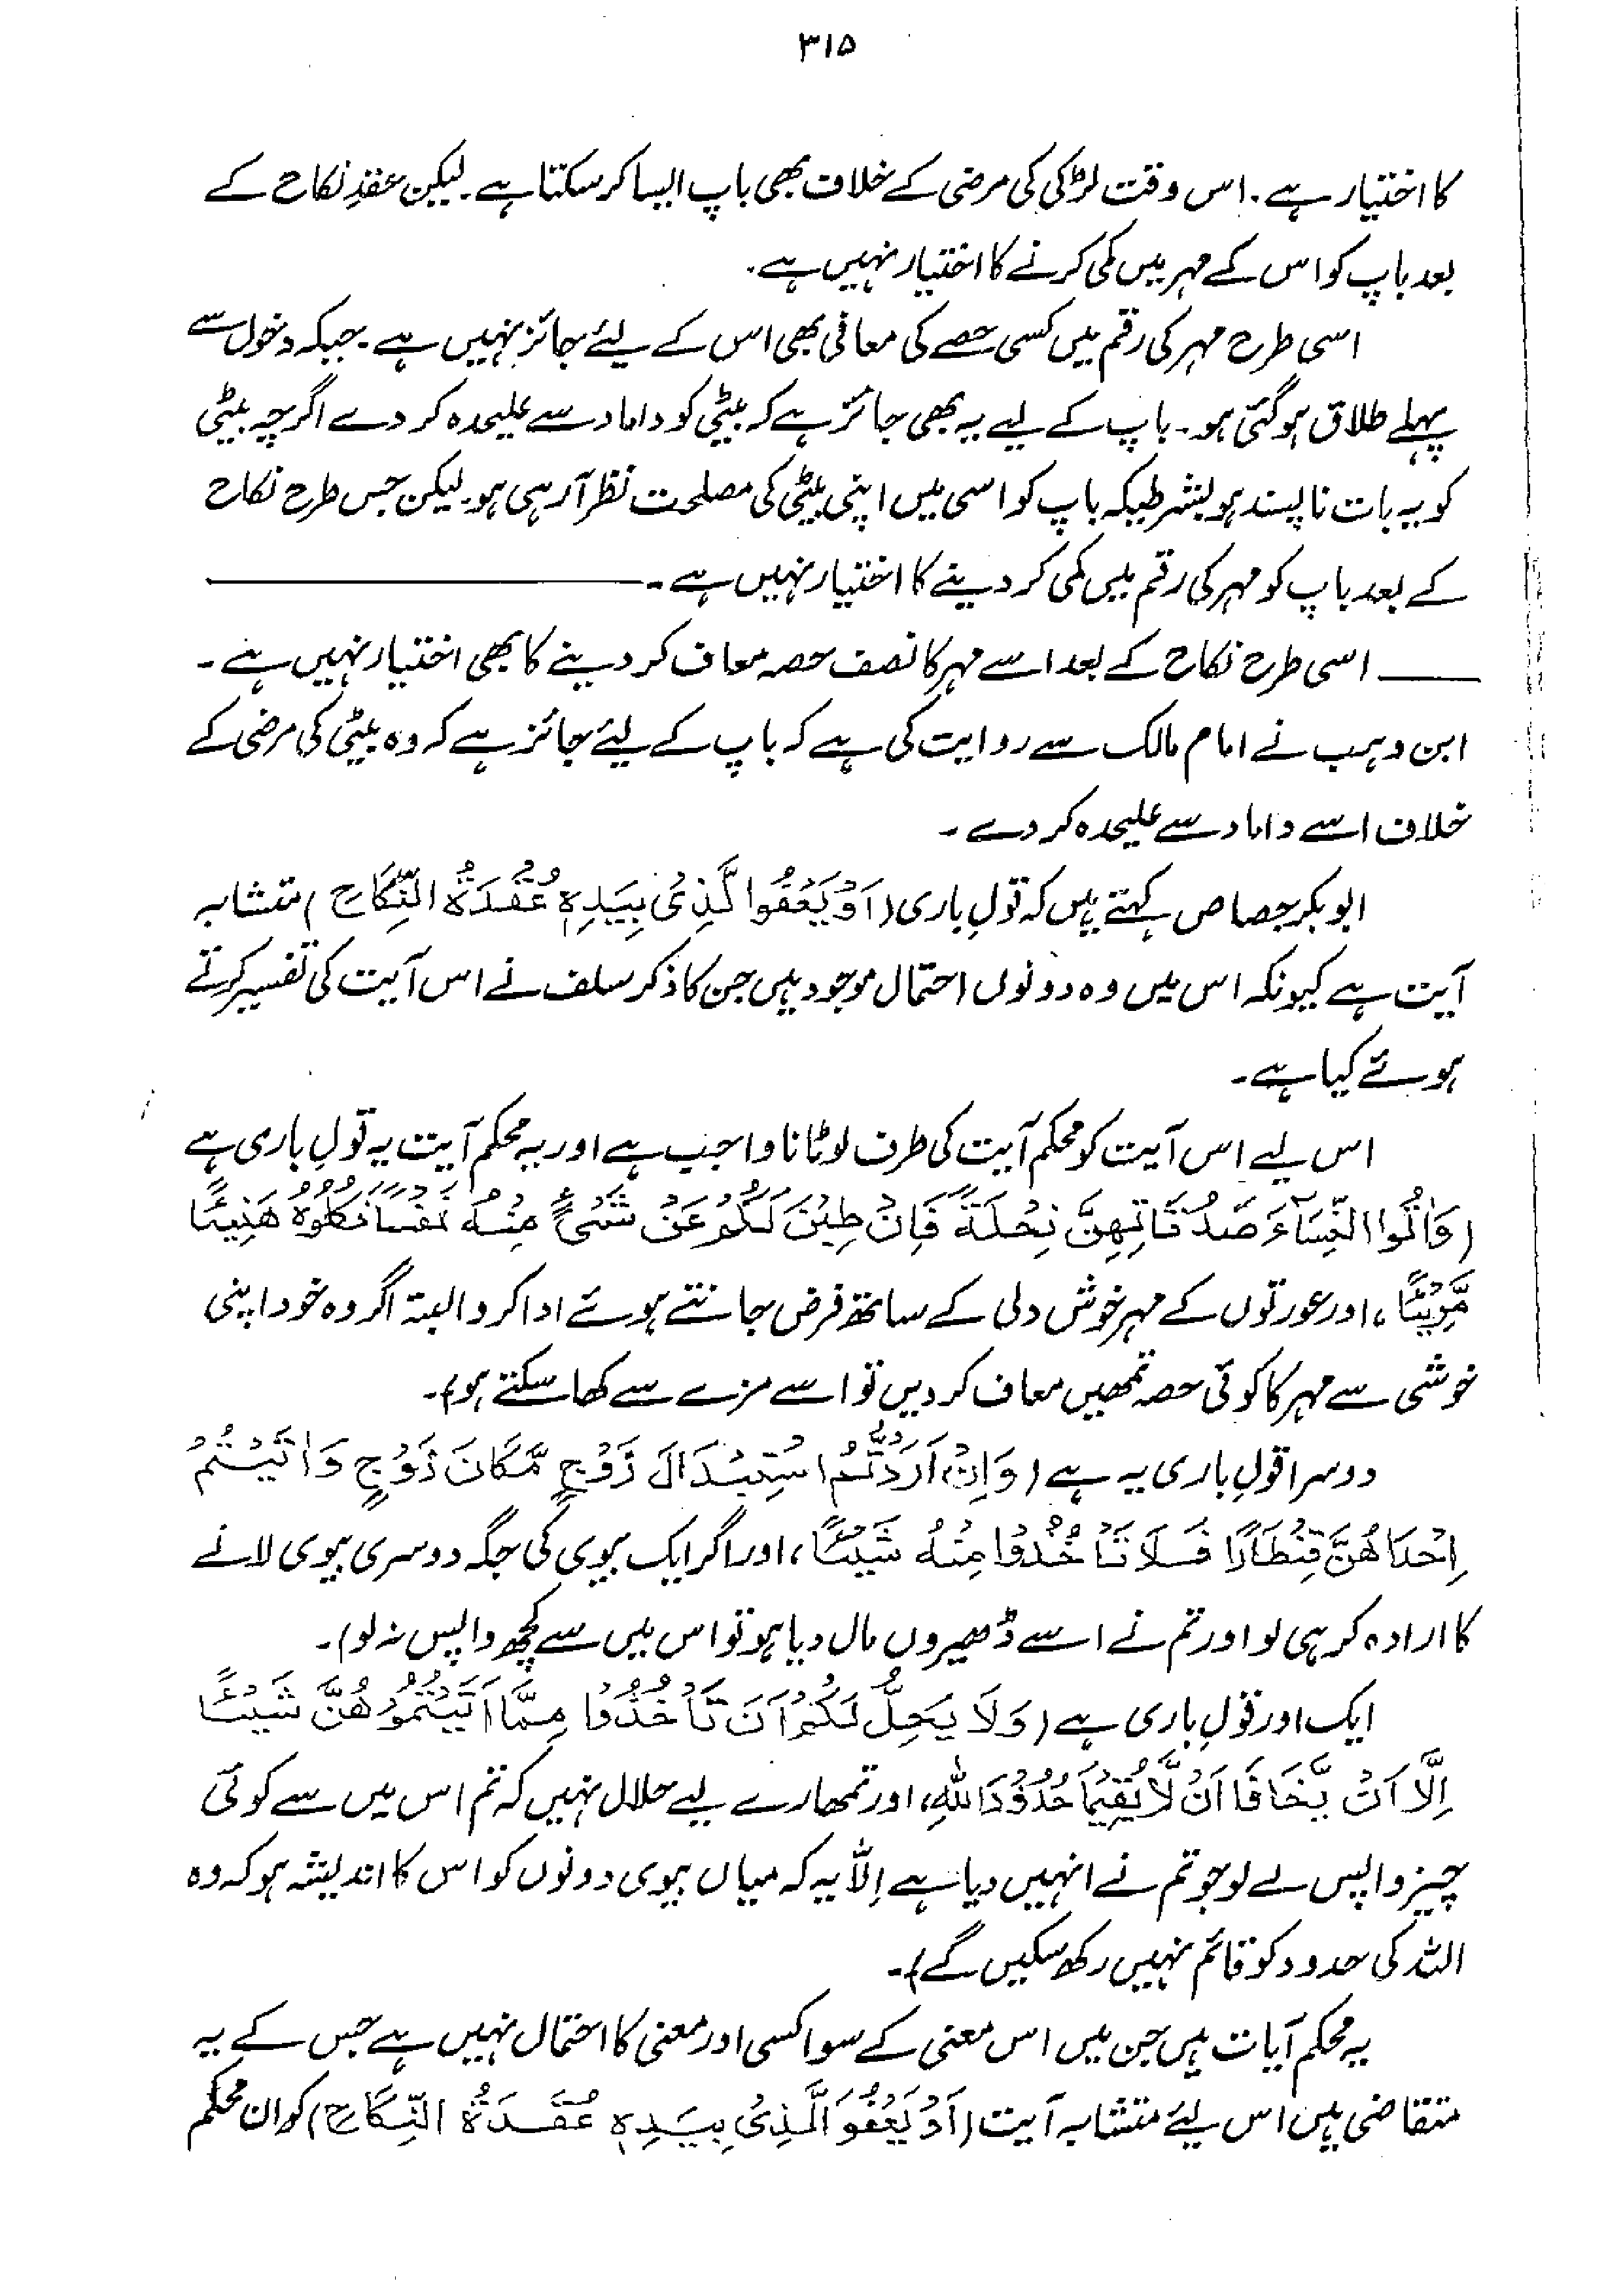 ۳۱۵
کا اختیار ہے۔ اس وقت لڑکی کی مرضی کے خلاف بھی باپ ایسا کر سکتا ہے۔ لیکن عقدِ نکاح کے
بعد باپ کو اس کے مہر میں کمی کرنے کا اختیار نہیں ہے۔
اسی طرح مہر کی رقم میں کسی حصے کی معافی بھی اس کے لیٔے جائز نہیں ہے۔ جبکہ دخول سے
پہلے طلاق ہو گئی ہو۔ باپ کے لیے یہ بھی جائز ہے کہ بیٹی کو داماد سے علیحدہ کر دے اگرچہ بیٹی
کو یہ بات ناپسند ہو بشرطیکہ باپ کو اسی میں اپنی بیٹی کی مصلحت نظر آ رہی ہو۔ لیکن جس طرح نکاح
کے بعد باپ کو مہر کی رقم میں کمی کر دینے کا اختیار نہیں ہے۔
اسی طرح نکاح کے بعد اسے مہر کا نصف حصہ معاف کر دینے کا بھی اختیار نہیں ہے۔
ابن وہب نے امام مالک سے روایت کی ہے کہ باپ کے لیٔے جائز ہے کہ وہ بیٹی کی مرضی کے
خلاف اسے داماد سے علیحدہ کر دے۔
ابوبکر جصاص کہتے ہیں کہ قولِ باری (اَوْ یَعْفُوا لَّذِیْ بِیَدِہٖ عُقْدَۃُ النِّکَاحِ) متشابہ
آیت ہے کیونکہ اس میں وہ دونوں احتمال موجود ہیں جن کا ذکر سلف نے اس آیت کی تفسیر کرتے
ہوئے کیا ہے۔
اس لیے اس آیت کو محکم آیت کی طرف لوٹانا واجب ہے اور یہ محکم آیت یہ قولِ باری ہے
(وَاٰتُوا النِّسَآءَ صَدُقَاتِهِنَّ نِحْلَةً فَاِنْ طِبْنَ لَكُمْ عَنْ شَیْءٍ مِنْهُ نَفْسًا فَكُلُوْهُ هَنِیْئًا
مَّرِیْئًا، اور عورتوں کے مہر خوش دلی کے ساتھ فرض جانتے ہوئے ادا کرو البتہ اگر وہ خود اپنی
خوشی سے مہر کا کوئی حصہ تمھیں معاف کر دیں تو اسے مزے سے کھا سکتے ہو)۔
دوسرا قولِ باری یہ ہے (وَاِنْ اَرَدْتُّمُ اسْتِبْدَالَ زَوْجٍ مَّکَانَ زَوْجٍ وَاٰتَیْتُمْ
اِحْدَاهُنَّ قِنْطَارًا فَلَا تَأْخُذُوْا مِنْهُ شَیْئًا، اور اگر ایک بیوی کی جگہ دوسری بیوی لانے
کا ارادہ کر ہی لو اور تم نے اسے ڈھیروں مال دیا ہو تو اس میں سے کچھ واپس نہ لو)۔
ایک اور قولِ باری ہے (وَلَا یَحِلُّ لَکُمْ اَنْ تَأْخُذُوْا مِمَّا اٰتَیْتُمُوْهُنَّ شَیْئًا
اِلَّا اَنْ یَّخَافَا اَنْ لَّا یُقِیْمَا حُدُوْدَ اللّٰهِ، اور تمھارے لیے حلال نہیں کہ تم اس میں سے کوئی
چیز واپس لے لو جو تم نے انہیں دیا ہے اِلّا یہ کہ میاں بیوی دونوں کو اس کا اندیشہ ہو کہ وہ
اللہ کی حدود کو قائم نہیں رکھ سکیں گے)۔
یہ محکم آیات ہیں جن میں اس معنی کے سوا کسی اور معنی کا احتمال نہیں ہے جس کے یہ
متقاضی ہیں اس لیٔے متشابہ آیت (اَوْ یَعْفُوَ الَّذِیْ بِیَدِہٖ عُقْدَۃُ النِّکَاحِ) کو ان محکم